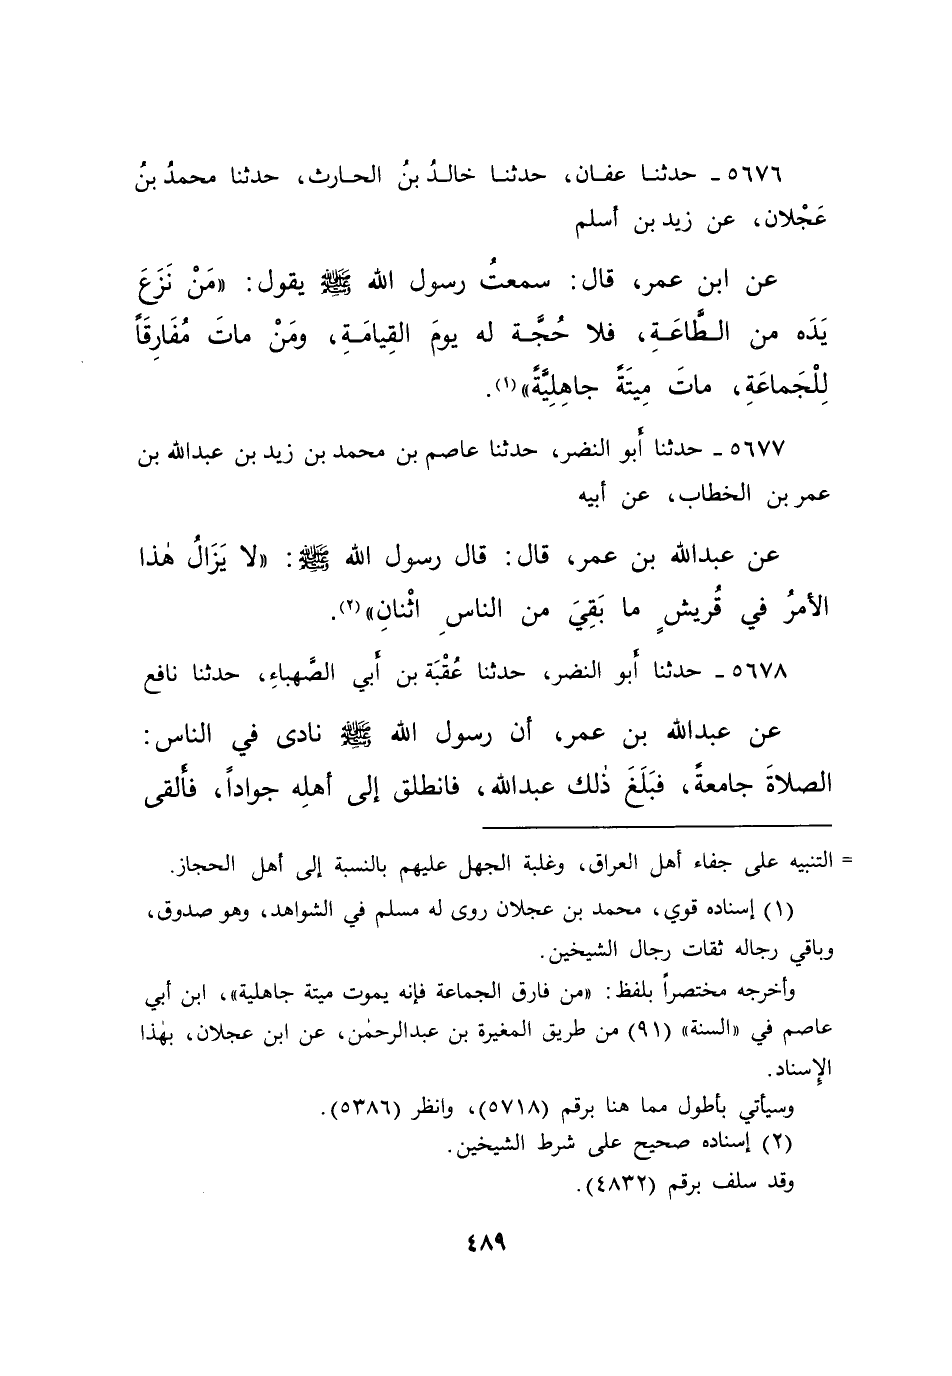 ٥٦٧٦ ـ حدثنـا عفـان، حدثنـا خالـدُ بنُ الحـارث، حدثنا محمدُ بنُ
عَجْلان، عن زيد بن أسلم
عن ابن عمر، قال: سمعتُ رسول الله ﷺ يقول: «مَنْ نَزَعَ
يَدَه من الـطَّاعَـةِ، فلا حُجَّـة له يومَ القِيامَـةِ، ومَنْ ماتَ مُفَارِقَاً
لِلْجَماعَةِ، ماتَ مِيتَةً جاهِلِيَّةً»(١).
٥٦٧٧ ـ حدثنا أَبو النضر، حدثنا عاصم بن محمد بن زيد بن عبدالله بن
عمر بن الخطاب، عن أبيه
عن عبدالله بن عمر، قال: قال رسول الله ﷺ: «لا يَزَالُ هٰذا
الأمرُ في قُريشٍ ما بَقِيَ من الناسِ اثْنانِ»(٢).
٥٦٧٨ ـ حدثنا أَبو النضر، حدثنا عُقْبَة بن أَبي الصَّهباءِ، حدثنا نافع
عن عبدالله بن عمر، أن رسول الله ﷺ نادى في الناس:
الصلاةَ جامعةً، فبَلَغَ ذٰلك عبدالله، فانطلق إلى أهلِه جواداً، فأَلقى
= التنبيه على جفاء أهل العراق، وغلبة الجهل عليهم بالنسبة إلى أهل الحجاز.
(١) إسناده قوي، محمد بن عجلان روى له مسلم في الشواهد، وهو صدوق،
وباقي رجاله ثقات رجال الشيخين.
وأخرجه مختصراً بلفظ: «من فارق الجماعة فإنه يموت ميتة جاهلية»، ابن أبي
عاصم في «السنة» (٩١) من طريق المغيرة بن عبدالرحمٰن، عن ابن عجلان، بهٰذا
الإِسناد.
وسيأتي بأطول مما هنا برقم (٥٧١٨)، وانظر (٥٣٨٦).
(٢) إسناده صحيح على شرط الشيخين.
وقد سلف برقم (٤٨٣٢).
٤٨٩